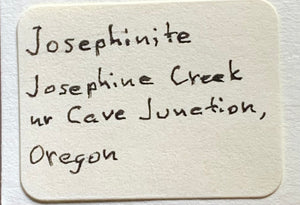 Josephinite
Josephine Creek
nr Cave Junction,
Oregon